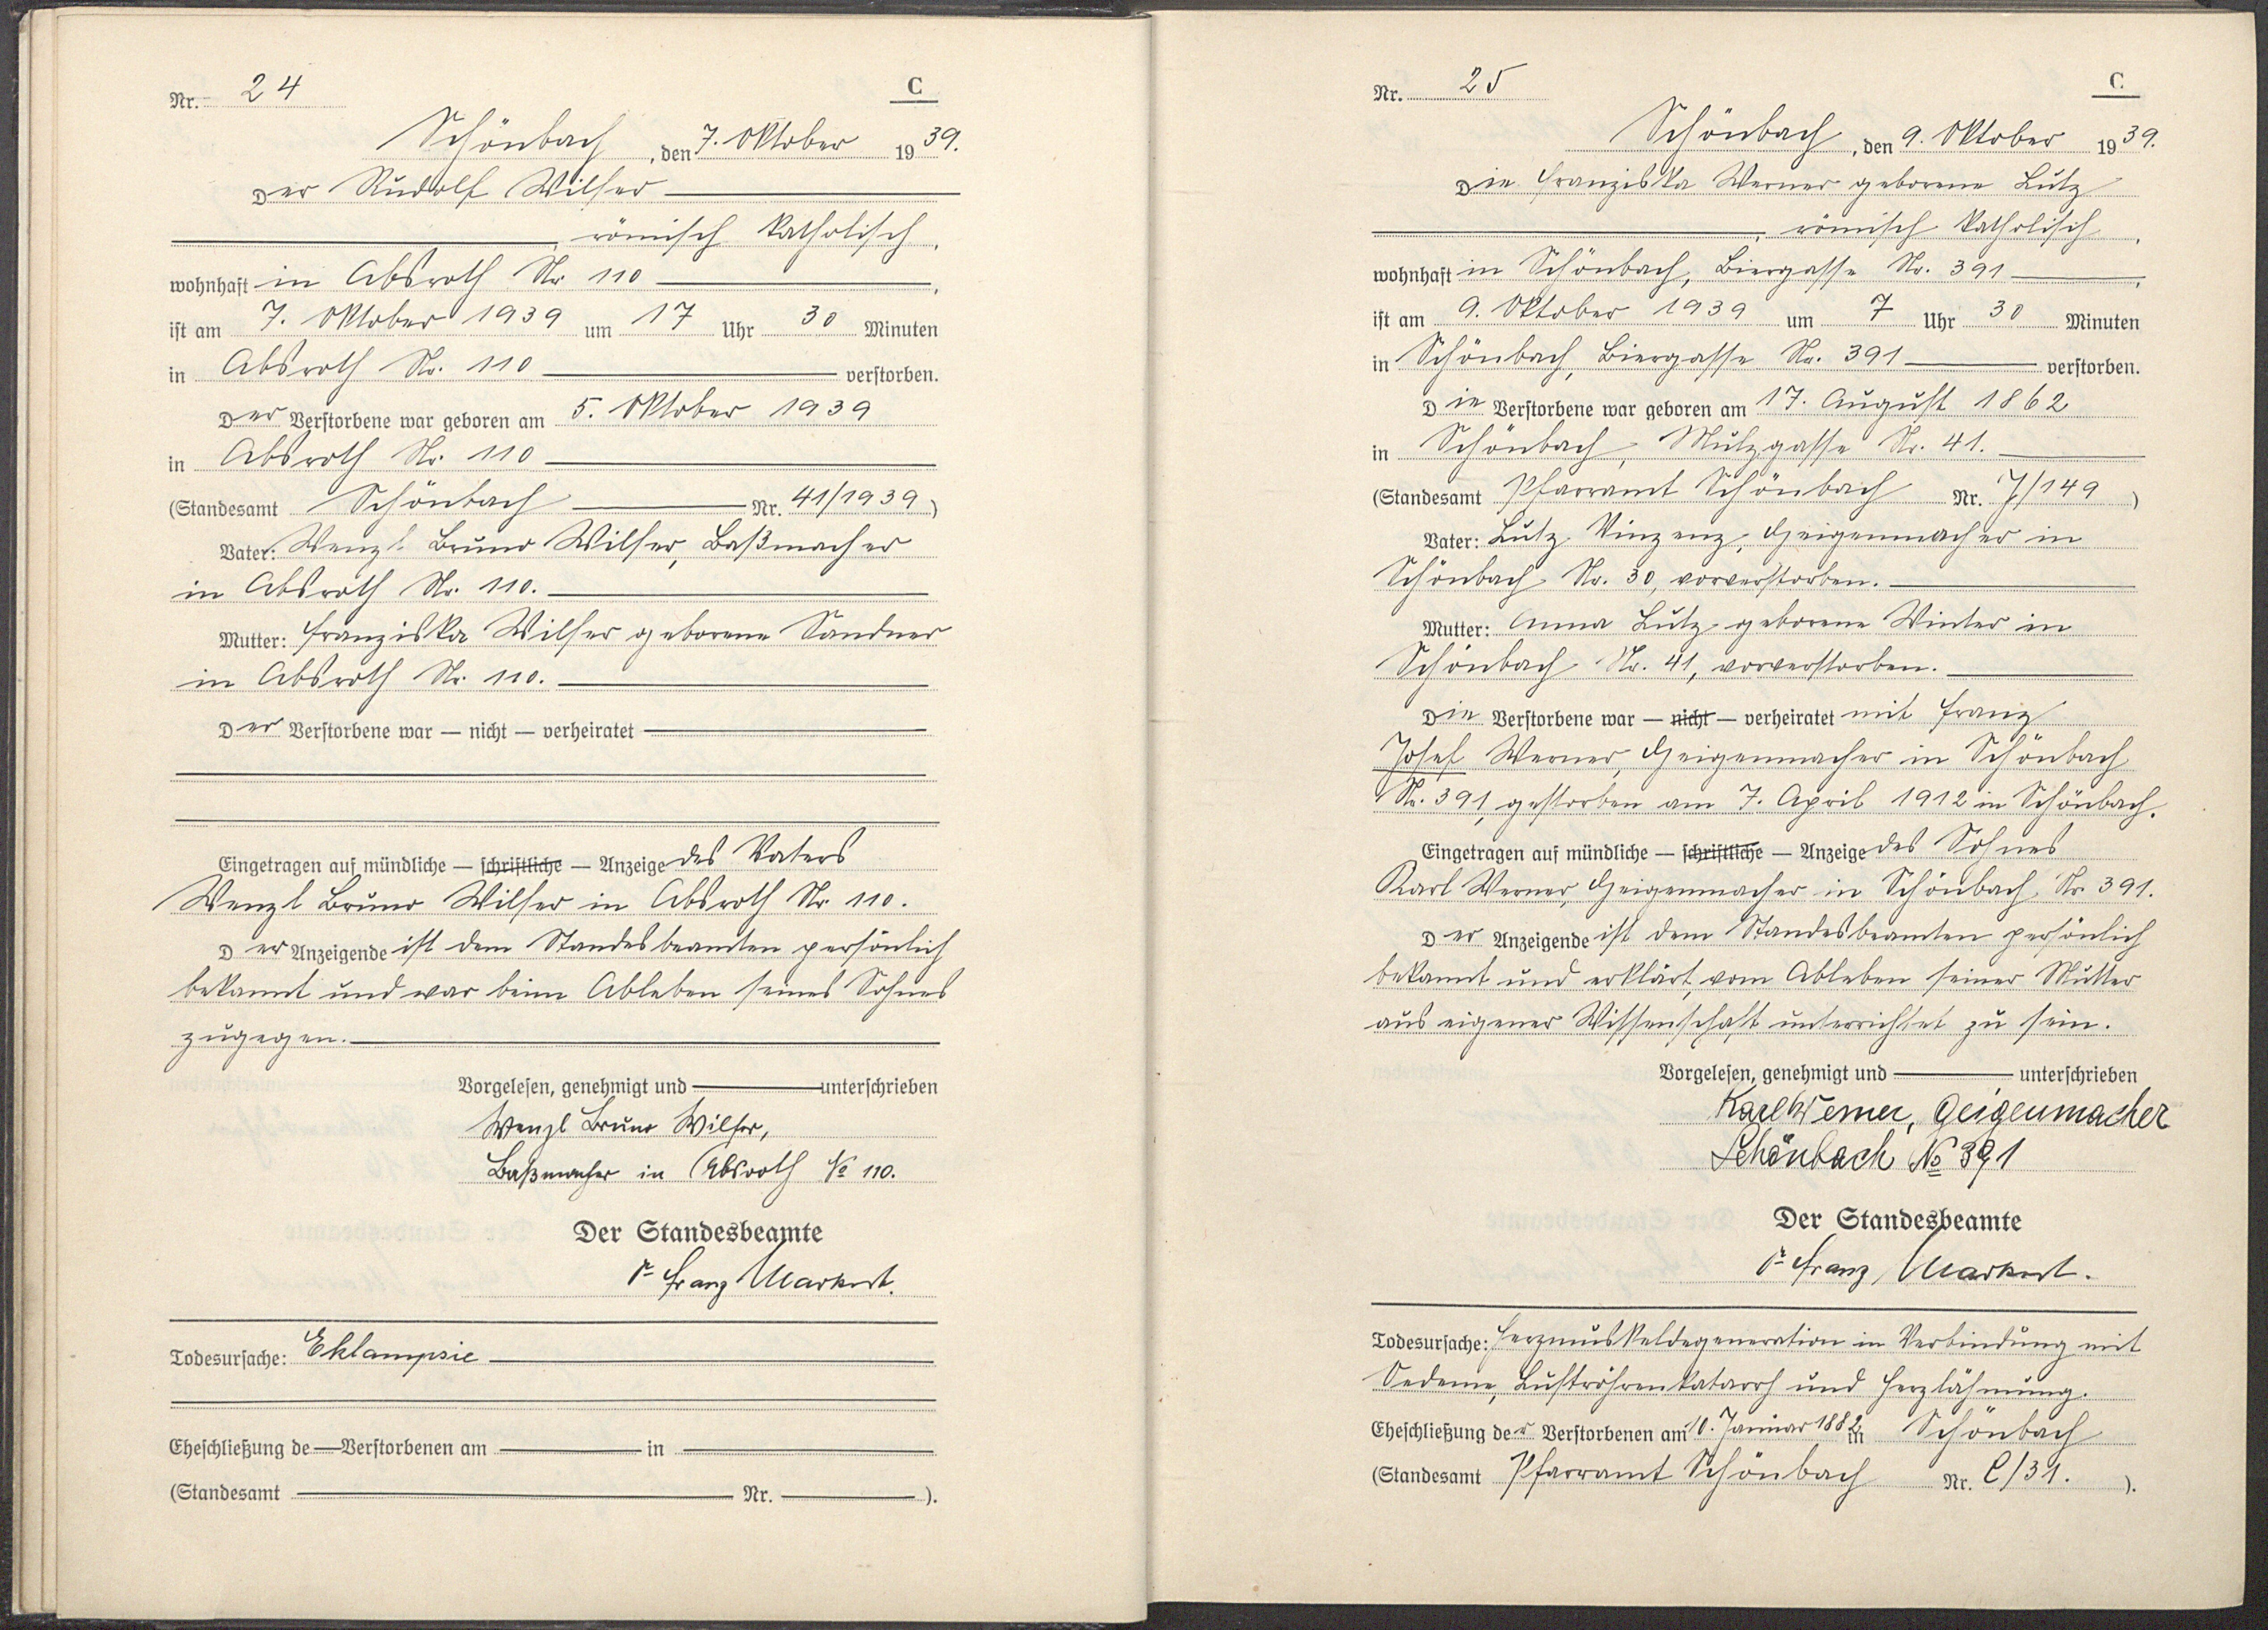 Nr. 24
C
Schönbach, den 7. Oktober 1939.
Der Rudolf Wilfer
, römisch katholisch,
wohnhaft in Absroth Nr. 110,
ist am 7. Oktober 1939 um 17 Uhr 30 Minuten
in Absroth Nr. 110 verstorben.
Der Verstorbene war geboren am 5. Oktober 1939
in Absroth Nr. 110
(Standesamt Schönbach Nr. 41/1939)
Vater: Wenzl Bruno Wilfer, Baßmacher
in Absroth Nr. 110.
Mutter: Franziska Wilfer geborene Sandner
in Absroth Nr. 110.
Der Verstorbene war — nicht — verheiratet
Eingetragen auf mündliche — schriftliche — Anzeige des Vaters
Wenzl Bruno Wilfer in Absroth Nr. 110.
Der Anzeigende ist dem Standesbeamten persönlich
bekannt und war beim Ableben seines Sohnes
zugegen.
Vorgelesen, genehmigt und unterschrieben
Wenzl Bruno Wilfer,
Baßmacher in Absroth № 110.
Der Standesbeamte
Franz Markert.
Todesursache: Eklampsie
Eheschließung de Verstorbenen am in
(Standesamt Nr. ).
Nr. 25
C
Schönbach, den 9. Oktober 1939.
Die Franziska Werner geborene Lutz
, römisch katholisch,
wohnhaft in Schönbach, Biergasse Nr. 391,
ist am 9. Oktober 1939 um 7 Uhr 30 Minuten
in Schönbach, Biergasse Nr. 391 verstorben.
Die Verstorbene war geboren am 17. August 1862
in Schönbach, Mulzgasse Nr. 41.
(Standesamt Pfarramt Schönbach Nr. 7/149)
Vater: Lutz Vinzenz, Geigenmacher in
Schönbach Nr. 30, vorverstorben.
Mutter: Anna Lutz geborene Winter in
Schönbach Nr. 41, vorverstorben.
Die Verstorbene war — nicht — verheiratet mit Franz
Josef Werner, Geigenmacher in Schönbach
Nr. 391, gestorben am 7. April 1912 in Schönbach.
Eingetragen auf mündliche — schriftliche — Anzeige des Sohnes
Karl Werner, Geigenmacher in Schönbach Nr. 391.
Der Anzeigende ist dem Standesbeamten persönlich
bekannt und erklärt, vom Ableben seiner Mutter
aus eigener Wissenschaft unterrichtet zu sein.
Vorgelesen, genehmigt und unterschrieben
Karl Werner, Geigenmacher
Schönbach № 391
Der Standesbeamte
Franz Markert.
Todesursache: Herzmuskeldegeneration in Verbindung mit
Oedeme, Luftröhrenkatarrh und Herzlähmung.
Eheschließung der Verstorbenen am 10. Januar 1882 in Schönbach
(Standesamt Pfarramt Schönbach Nr. C/31. ).